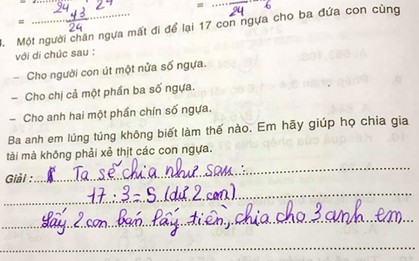 24 24
= 43
24 = 24 6
. Một người chăn ngựa mất đi để lại 17 con ngựa cho ba đứa con cùng
với di chúc sau :
– Cho người con út một nửa số ngựa.
– Cho chị cả một phần ba số ngựa.
– Cho anh hai một phần chín số ngựa.
Ba anh em lúng túng không biết làm thế nào. Em hãy giúp họ chia gia
tài mà không phải xẻ thịt các con ngựa.
Giải : Ta sẽ chia như sau :
17 : 3 = 5 (dư 2 con)
Lấy 2 con bán lấy tiền, chia cho 3 anh em